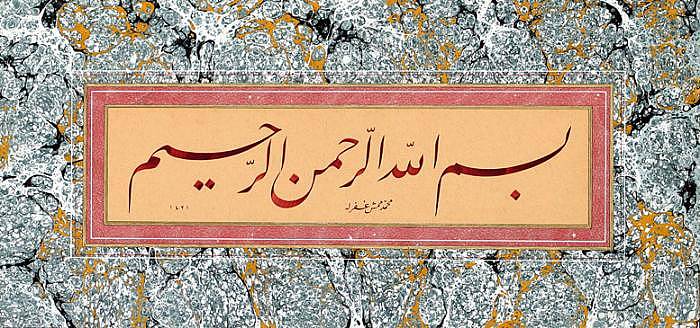 بسم الله الرحمن الرحيم
محمد غفرله
١٤٢١